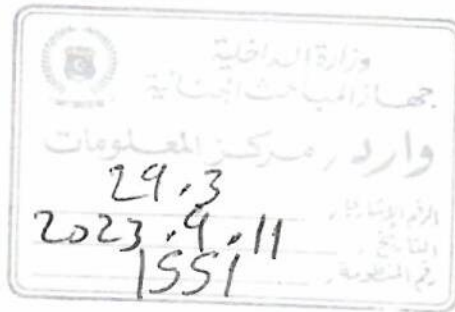 وزارة الداخلية
جهاز المباحث الجنائية
وارد / مركز المعلومات
الرقم الإشاري / 29.3
التاريخ / 2023.9.11
رقم المنظومة / 1551